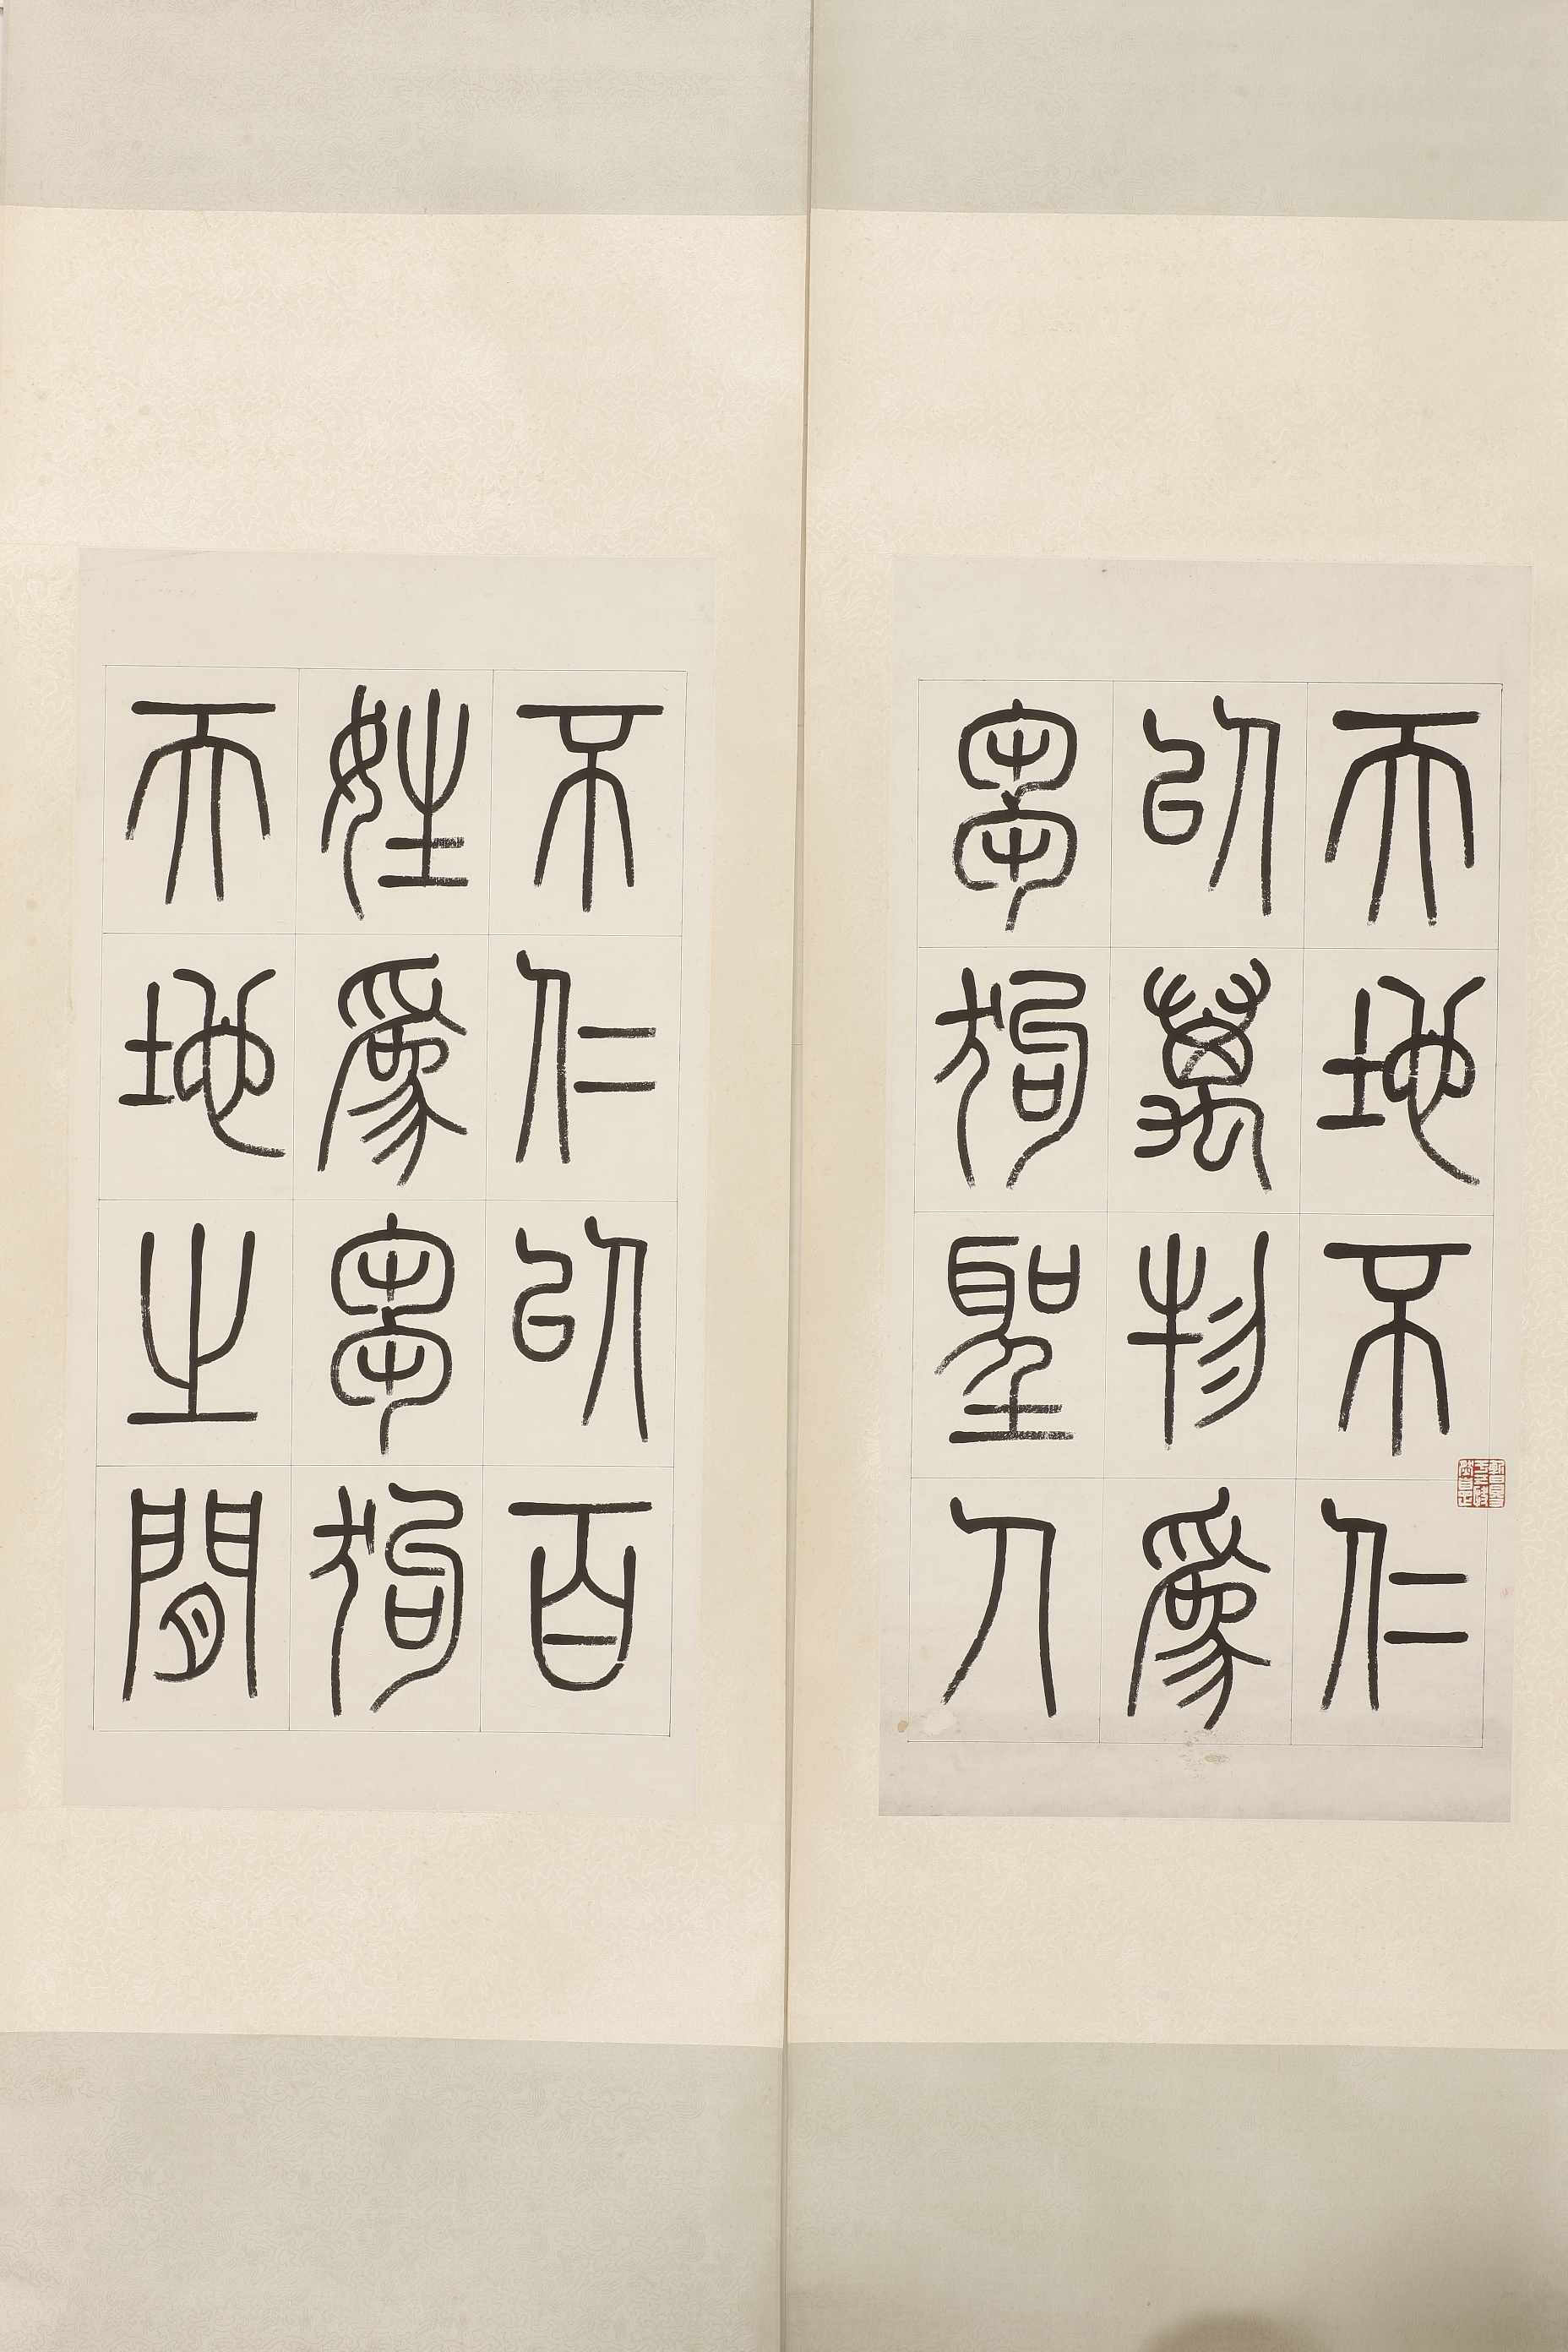 天地不仁
以萬物爲
芻狗聖人
不仁以百
姓爲芻狗
天地之間